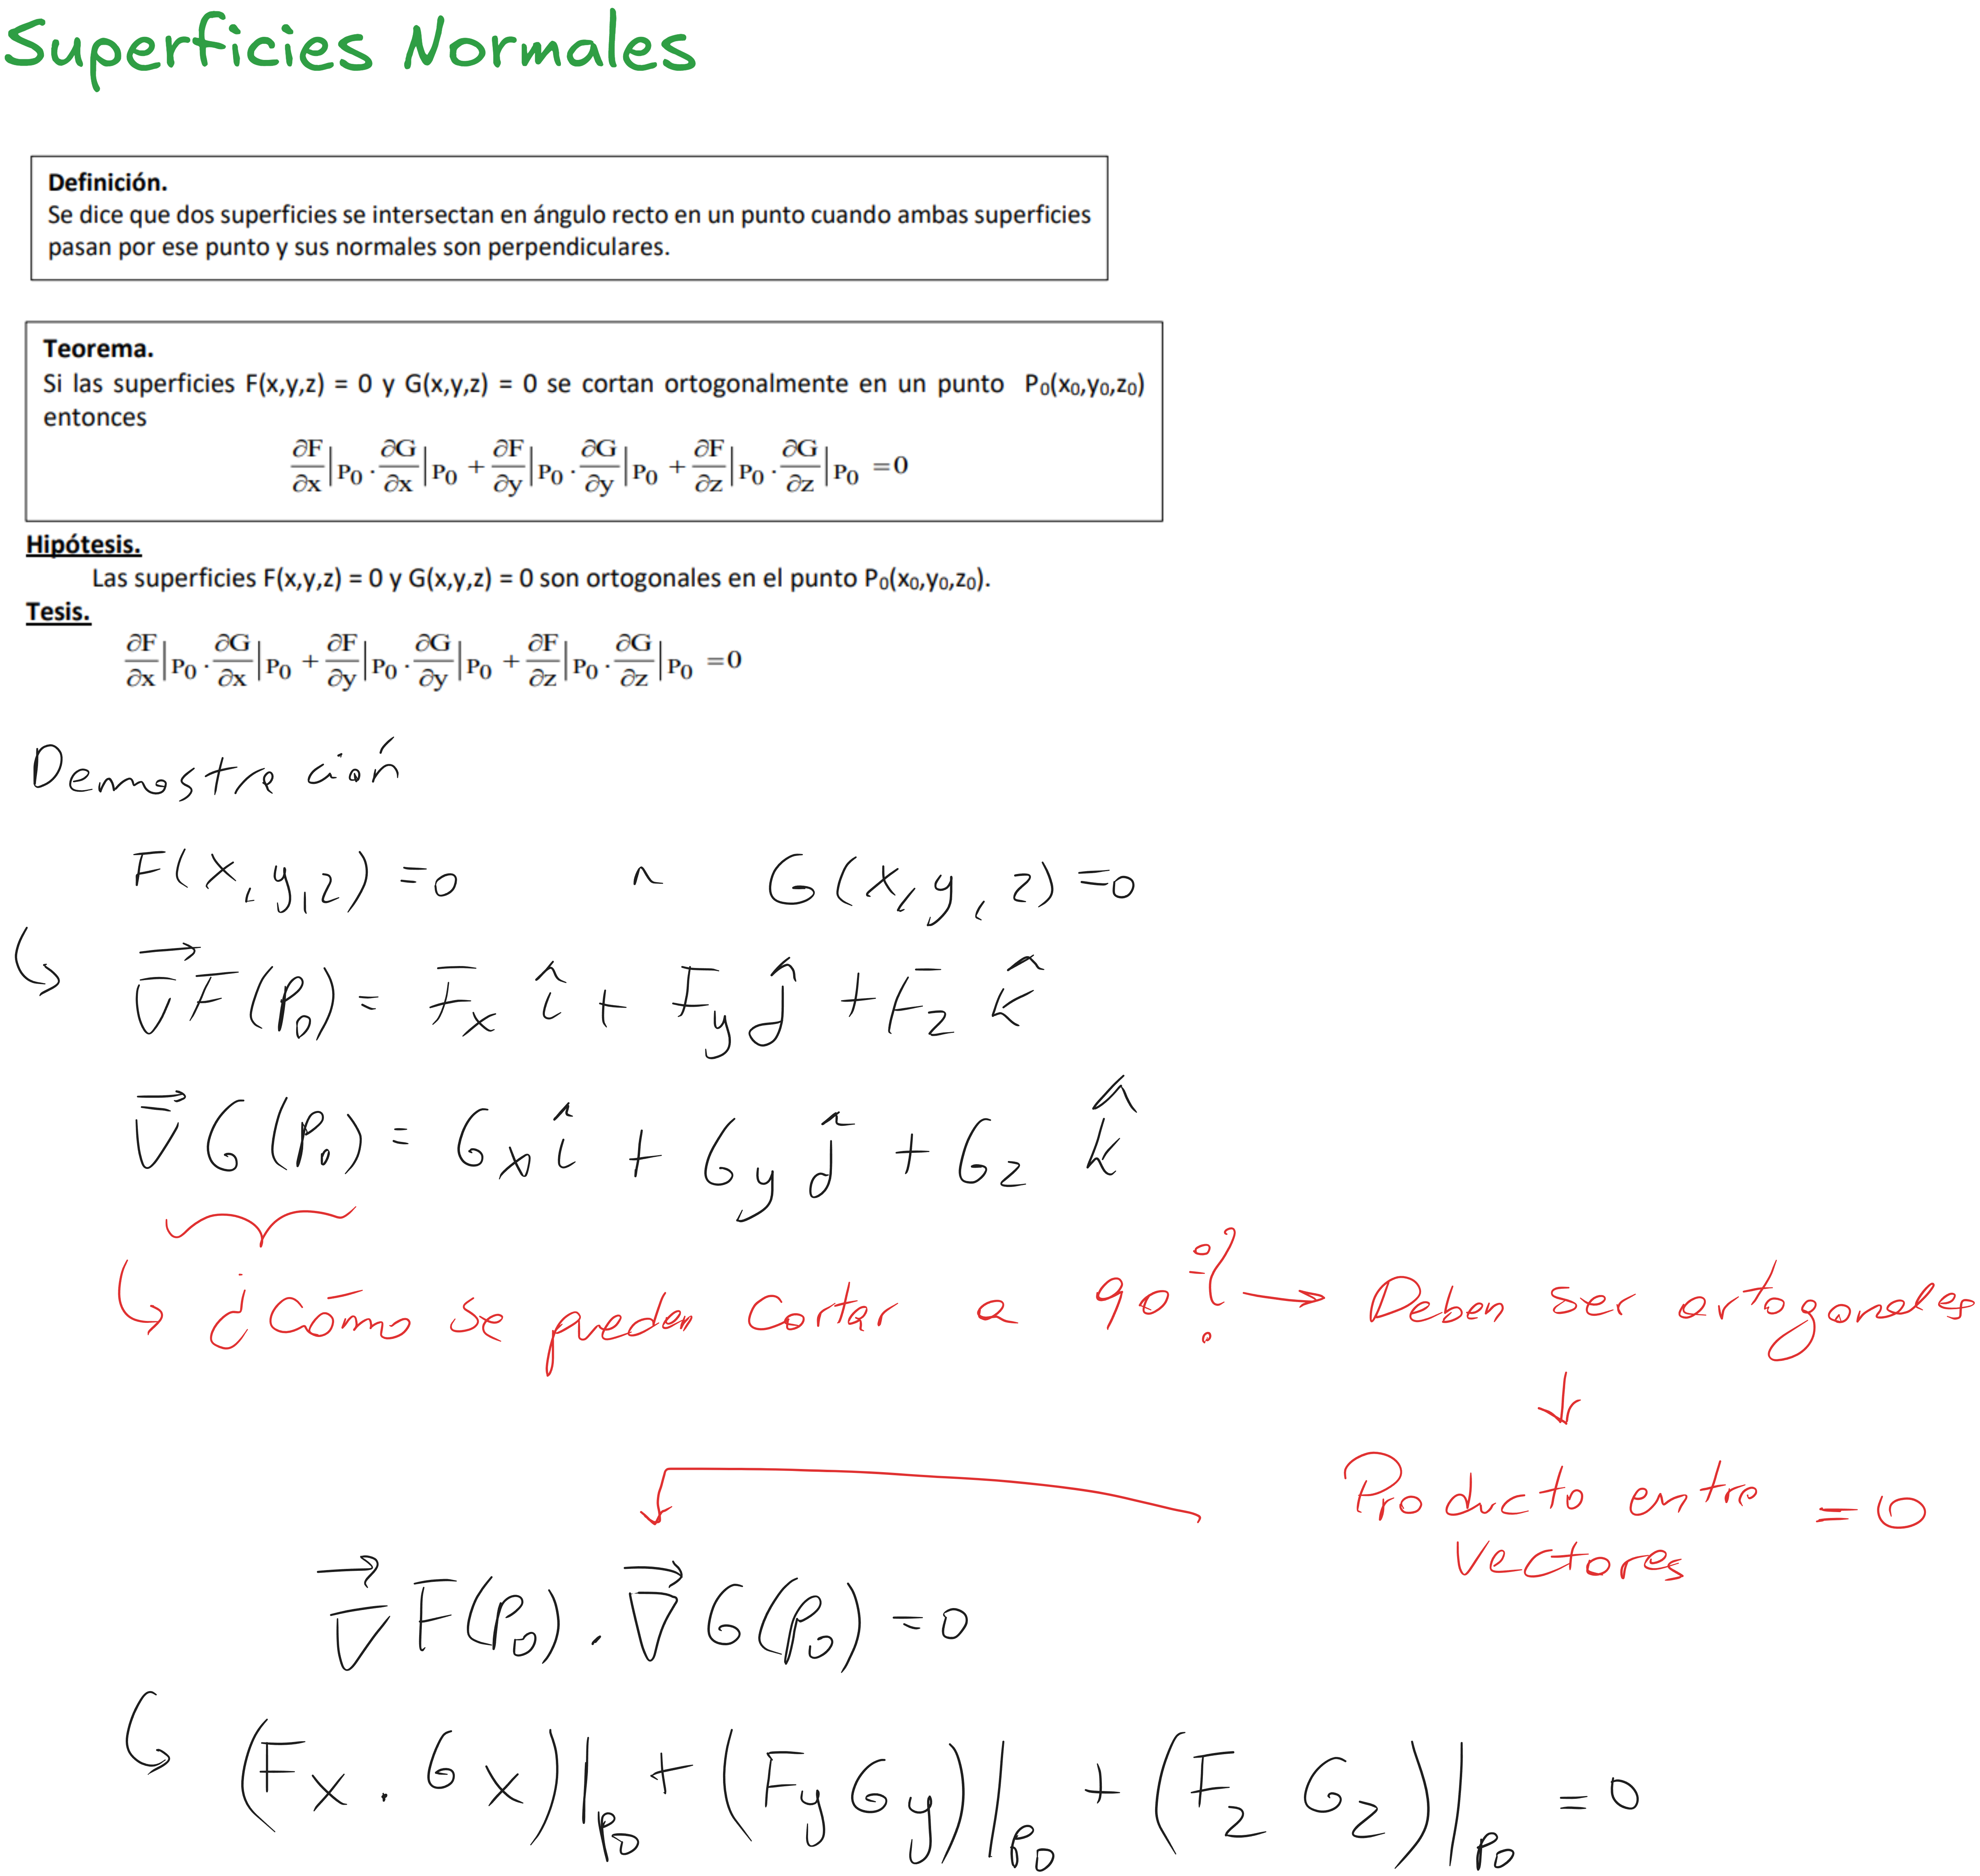 Superficies Normales
Definición.
Se dice que dos superficies se intersectan en ángulo recto en un punto cuando ambas superficies
pasan por ese punto y sus normales son perpendiculares.
Teorema.
Si las superficies F(x,y,z) = 0 y G(x,y,z) = 0 se cortan ortogonalmente en un punto P₀(x₀,y₀,z₀)
entonces
∂F/∂x|P₀ . ∂G/∂x|P₀ + ∂F/∂y|P₀ . ∂G/∂y|P₀ + ∂F/∂z|P₀ . ∂G/∂z|P₀ = 0
Hipótesis.
Las superficies F(x,y,z) = 0 y G(x,y,z) = 0 son ortogonales en el punto P₀(x₀,y₀,z₀).
Tesis.
∂F/∂x|P₀ . ∂G/∂x|P₀ + ∂F/∂y|P₀ . ∂G/∂y|P₀ + ∂F/∂z|P₀ . ∂G/∂z|P₀ = 0
Demostración
F(x,y,z)=0 ^ G(x,y,z)=0
↳ ∇⃗F(P₀) = Fx î + Fy ĵ + Fz k̂
∇⃗G(P₀) = Gx î + Gy ĵ + Gz k̂
↳ ¿Cómo se pueden cortar a 90°? → Deben ser ortogonales
↓
Producto entre = 0
vectores
∇⃗F(P₀) . ∇⃗G(P₀) = 0
↳ (Fx . Gx)|P₀ + (Fy Gy)|P₀ + (Fz Gz)|P₀ = 0